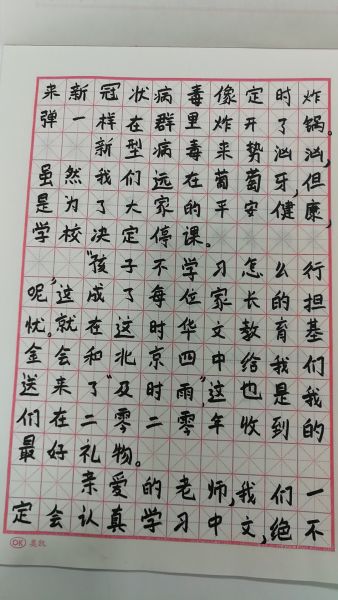 来新冠状病毒像定时炸
弹一样在群里炸开了锅。
新型病毒来势汹汹，
虽然我们远在葡萄牙，但
是为了大家的平安健康，
学校决定停课。
“孩子不学习怎么行
呢”，这成了每位家长的担
忧。就在这时华文教育基
金会和北京四中给我们
送来了“及时雨”，这也是我
们在二零二零年收到的
最好礼物。
亲爱的老师，我们一
定会认真学习中文，绝不
OK 美凯